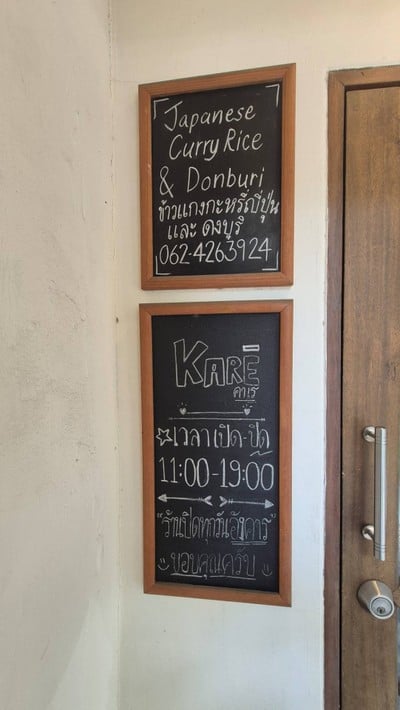 Japanese
Curry Rice
& Donburi
ข้าวแกงกะหรี่ญี่ปุ่น
และ ดงบุริ
062-4263924
KARĒ
คาเร
เวลาเปิด-ปิด
11:00-19:00
"ร้านปิดทุกวันอังคาร"
ขอบคุณครับ